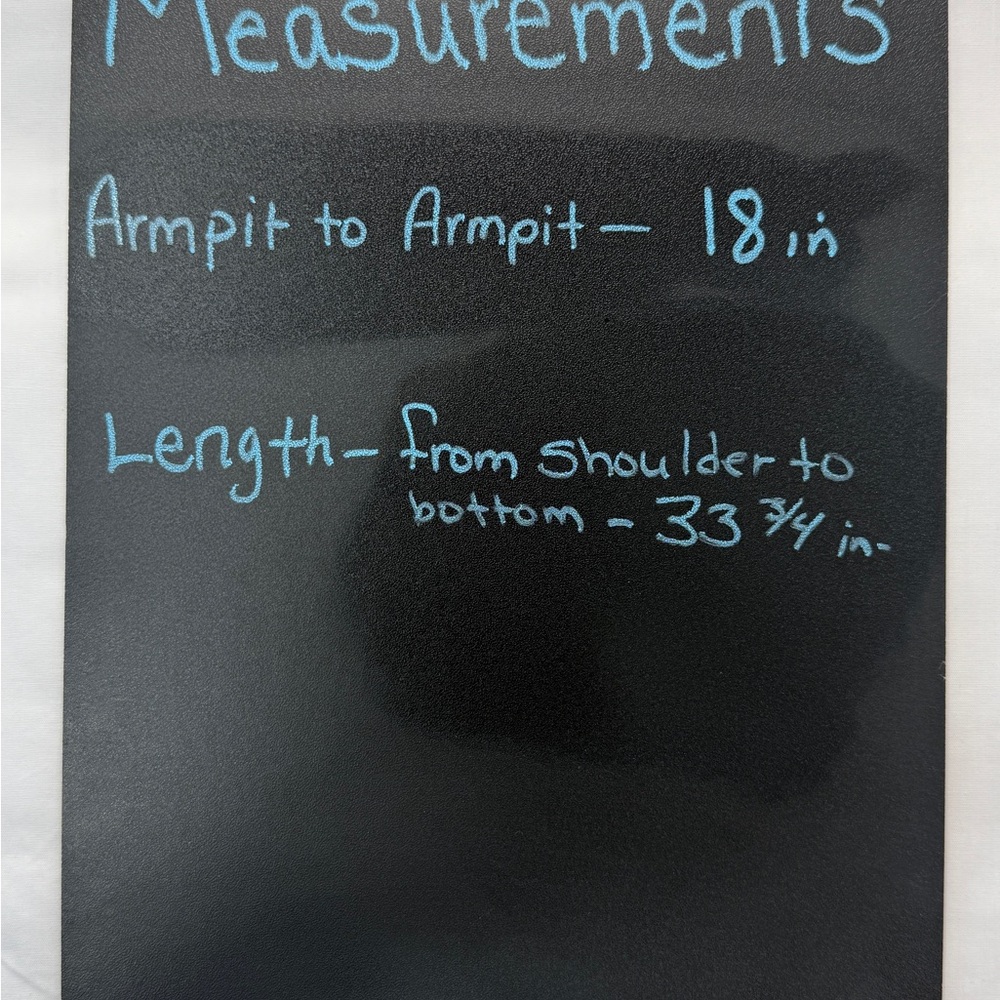 Measurements
Armpit to Armpit - 18 in
Length - from shoulder to
bottom - 33 3/4 in-